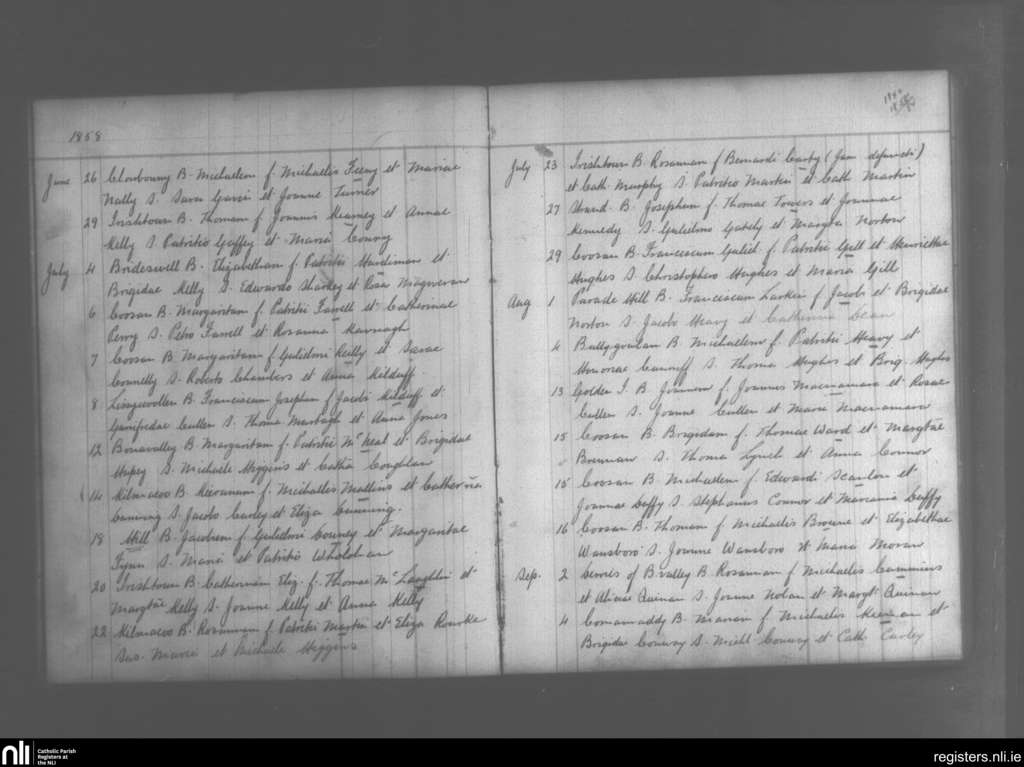 1858
June 26 Clonbouny B. Michaelem f. Michaelis Feeny et Mariae
Nally S. Sara Gavin et Joanne Turner
29 Irishtown B. Thomam f. Joannis Kearney et Annae
Kelly S. Patritio Gaffey et Maria Conroy
July 4 Brideswell B. Elizabetham f. Patritii Hardiman et
Brigidae Kelly S. Edwardo Sharkey et Rosa Magiveran
6 Coosan B. Margaritam f. Patritii Farrell et Catherinae
Perry S. Petro Farrell et Rosanna Kavnagh
7 Coosan B. Margaritam f. Gulielmi Reilly et Sarae
Connelly S. Roberto Chambers et Anna Kilduff
8 B. Franciscum Josephum f. Jacobi Kilduff et
Cullen S. Thoma Murtagh et Anna Jones
12 Bonavalley B. Margaritam f. Patritii McNeal et Brigidae
S. Michaele Higgins et Catha Coughlan
14 Kilmacoo B. Kieranum f. Michaelis Mullins et Catherina
Cunning S. Jacobo Curley et Eliza Cunning.
18 Hill B. Jacobum f. Gulielmi County et Margaritae
Flynn S. Maria et Patritio Wholohan
20 Irishtown B. Catherinam Eliz. f. Thomae McLaughlin et
Margtae Kelly S. Joanne Kelly et Anna Kelly
22 Kilmacoo B. Rosannam f. Patritii Martin et Eliza Rourke
Sus. Maria et Michaele Higgins
July 23 Irishtown B. Rosannam f. Bernardi Carty (Jam defuncti)
et Cath Murphy S. Patritio Martin et Cath Martin
27 Strand B. Josephum f. Thomae Towers et Joannae
Kennedy S. Gulielmo Gately et Margta Norton
29 Coosan B. Franciscum Guliel f. Patritii Gill et Henriettae
Hughes S. Christophero Hughes et Maria Gill
Aug 1 Parade Hill B. Franciscum Larkin f. Jacobi et Brigidae
Norton S. Jacobo Heavy et Catherina Clean
4 Ballygowlan B. Michaelem f. Patritii Heavy et
Honorae S. Thoma Hughes et Brig. Hughes
13 Golden I. B. Joannem f. Joannis Macnamara et Rosae
Cullen S. Joanne Cullen et Maria Macnamara
15 Coosan B. Brigidam f. Thomae Ward et Margtae
Brennan S. Thoma Lynch et Anna Connor
15 Coosan B. Michaelem f. Edwardi Scanlon et
Joannae Duffy S. Stephanus Connor et Marianna Duffy
16 Coosan B. Thomam f. Michaelis Browne et Elizabethae
Wansboro S. Joanne Wansboro et Maria Moran
Sep. 2 Derries of B.valley B. Rosannam f. Michaelis Cummins
et Aliciae Quinan S. Joanne Nolan et Margt Quinan
4 Cornamaddy B. Mariam f. Michaelis Keenan et
Brigidae Conway S. Michl Conway et Cath Curley
nli
Catholic Parish
Registers at
the NLI
registers.nli.ie